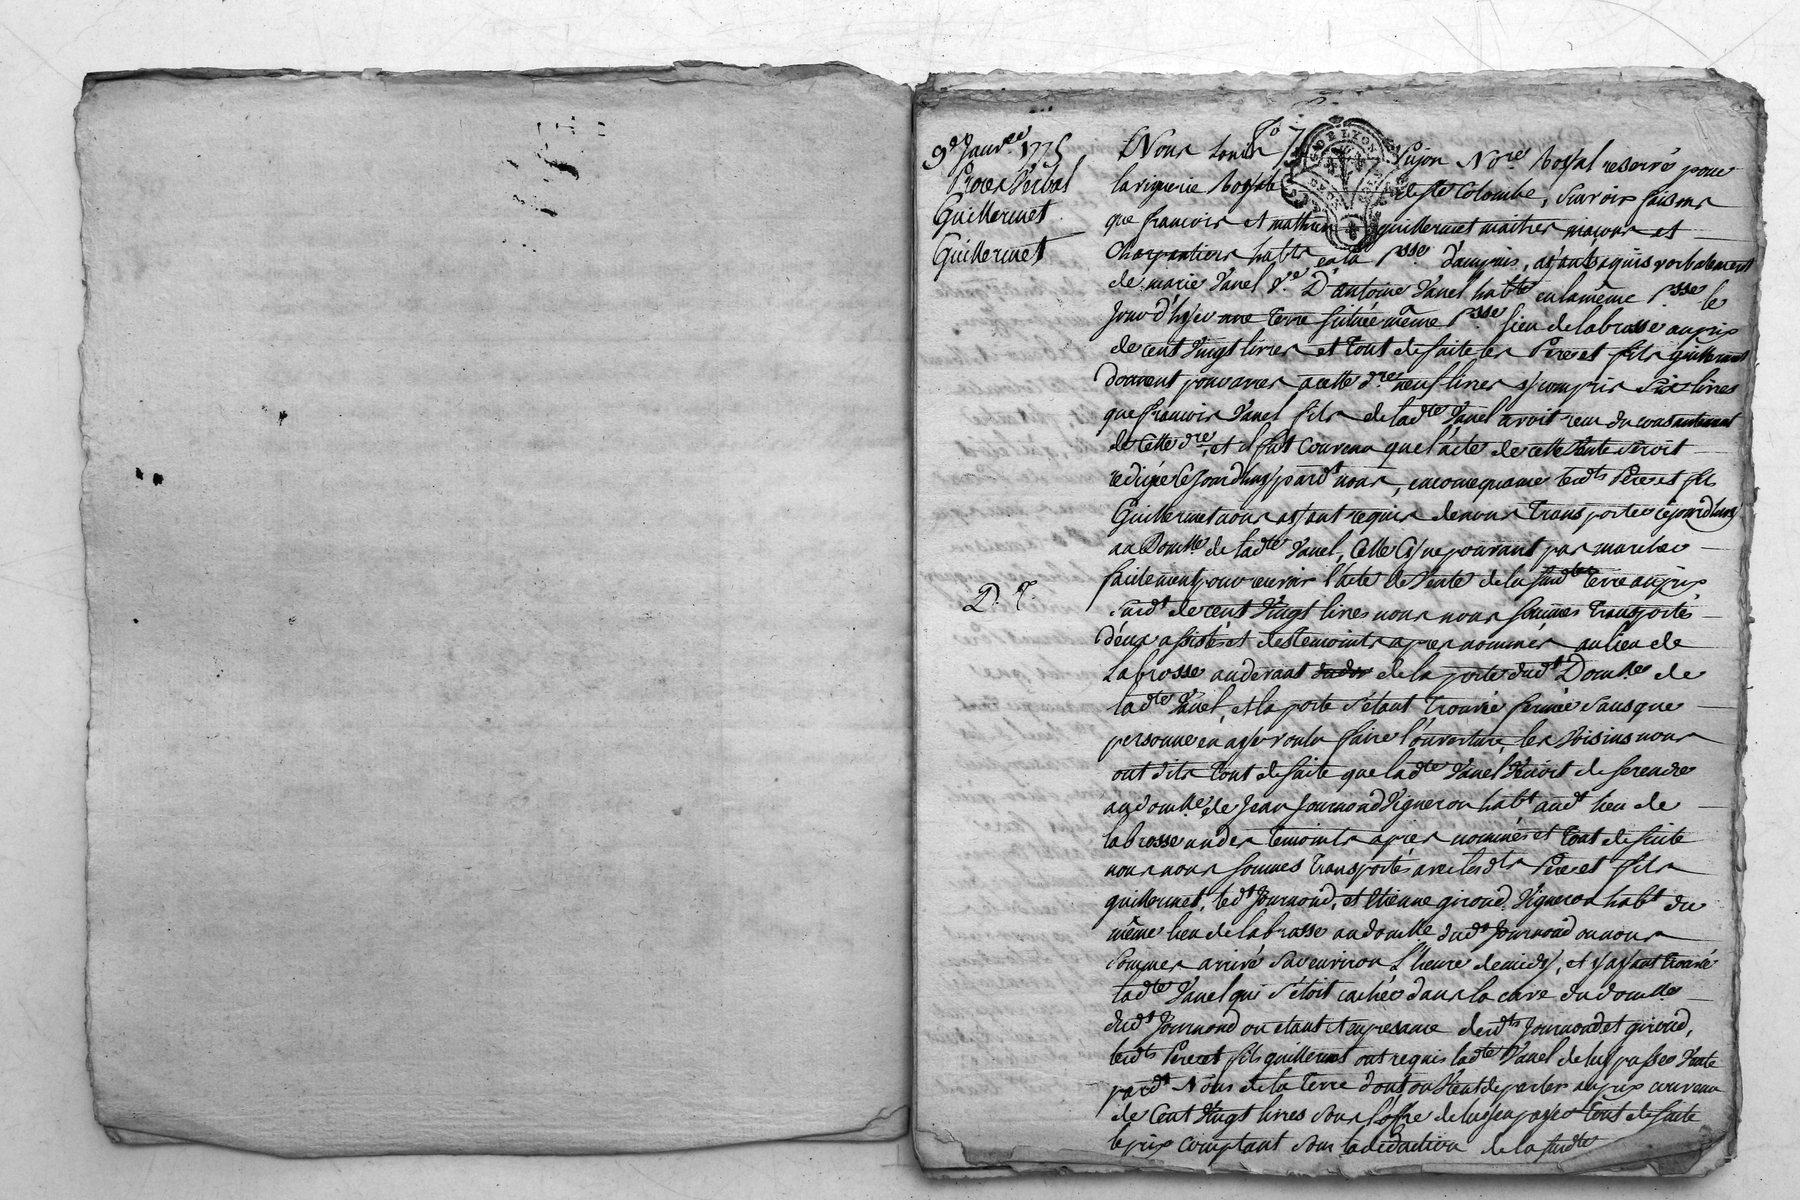 9e Janvee 1775
Proces Verbal
Guillermet
Guillermet
D. T.
Nous Louis pujon Nore Royal reservé pour
la viguerie Royale de Ste Colombe, Scavoir faisons
que francois et mathieu guillermet maitres maçons et
Charpentiers habts en la psse d'ampuis, ayant aquis verbalement
de marie Vanel Ve D'antoine Vanel habte en la même psse le
jour d'hyer une terre Située même psse lieu de la brosse au prix
de cent Vingt livres et tout de suite les Pere et fils Guillermet
donnent pour arres a cette dre neuf livres y compris Six livres
que francois Vanel fils de ladte Vanel avoit reçu du consentement
de cette dre, et il fut convenu que l'acte de cette Vente seroit
redigé Cejourdhuy pardt nous, en consequence lesdts Pere et fils
Guillermet nous ayant requis de nous transporter cejourdhuy
au Domlle de ladte Vanel, Celle Cy ne pouvant pas marcher
facilement pour recevoir l'acte de Vente de la susdte terre au prix
Susdt de cent Vingt livres nous nous sommes transportés
d'eux assisté et des temoints apres nommés au lieu de
Labrosse au devant de la porte dudt Domlle de
ladte Vanel, et la porte s'etant trouvée fermée sans que
personne en aye voulu faire l'ouverture, les Voisins nous
ont dits tout de suite que ladte Vanel Venoit de se rendre
au domlle de Jean Journoud Vigneron habt audt lieu de
labrosse un des temoints apres nommés et tout de suite
nous nous sommes transportés avec lesdts Pere et fils
guillermet, ledt Journoud, et Etienne giroud Vigneron habt du
même lieu de labrosse au domlle dudt Journoud ou nous
Sommes arrivé sur environ L'heure de midy, et y ayant trouvé
ladte Vanel qui s'etoit cachée dans la cave du domlle
dudt Journoud ou etant et en presence desdts Journoud et giroud,
lesdts Pere et fils guillermet ont requis ladte Vanel de luy passer Vente
pardt Nous de la terre dont on Vient de parler au prix convenu
de Cent Vingt livres sous l'offre de luy en payer tout de suite
le prix comptant sous la deduction de la susdte